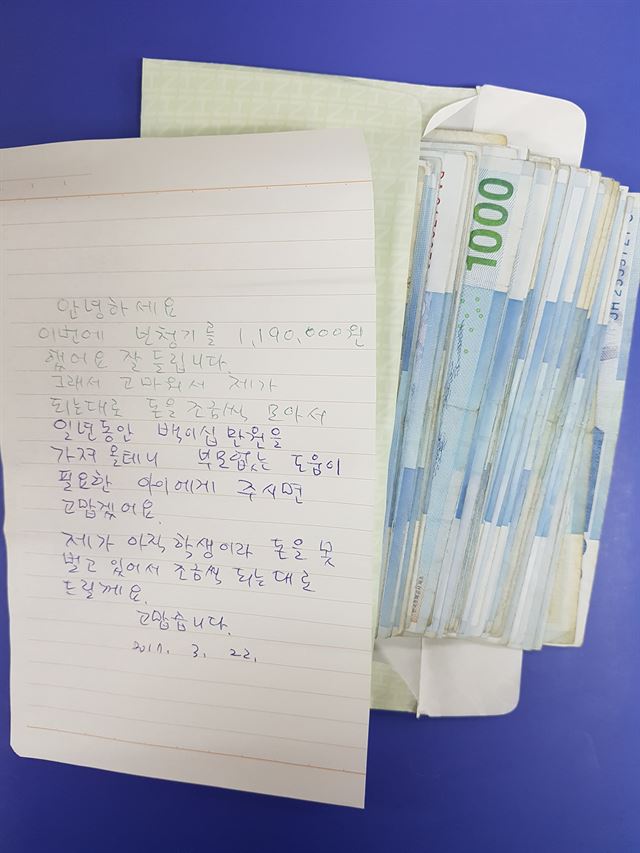 안녕하세요
이번에 보청기를 1,190,000원
했어요 잘 들립니다.
그래서 고마워서 제가
되는대로 돈을 조금씩 모아서
일년동안 백이십만원을
가져 올테니 부모없는 도움이
필요한 아이에게 주시면
고맙겠어요.
제가 아직 학생이라 돈을 못
벌고 있어서 조금씩 되는대로
드릴께요.
고맙습니다.
2017. 3. 22.
1000